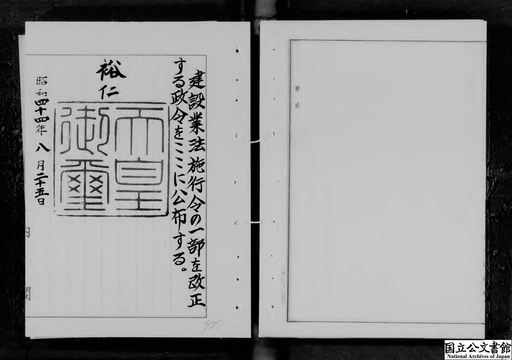 建設業法施行令の一部を改正
する政令をここに公布する。
裕仁
天皇御璽
昭和四十四年八月二十五日
国立公文書館
National Archives of Japan